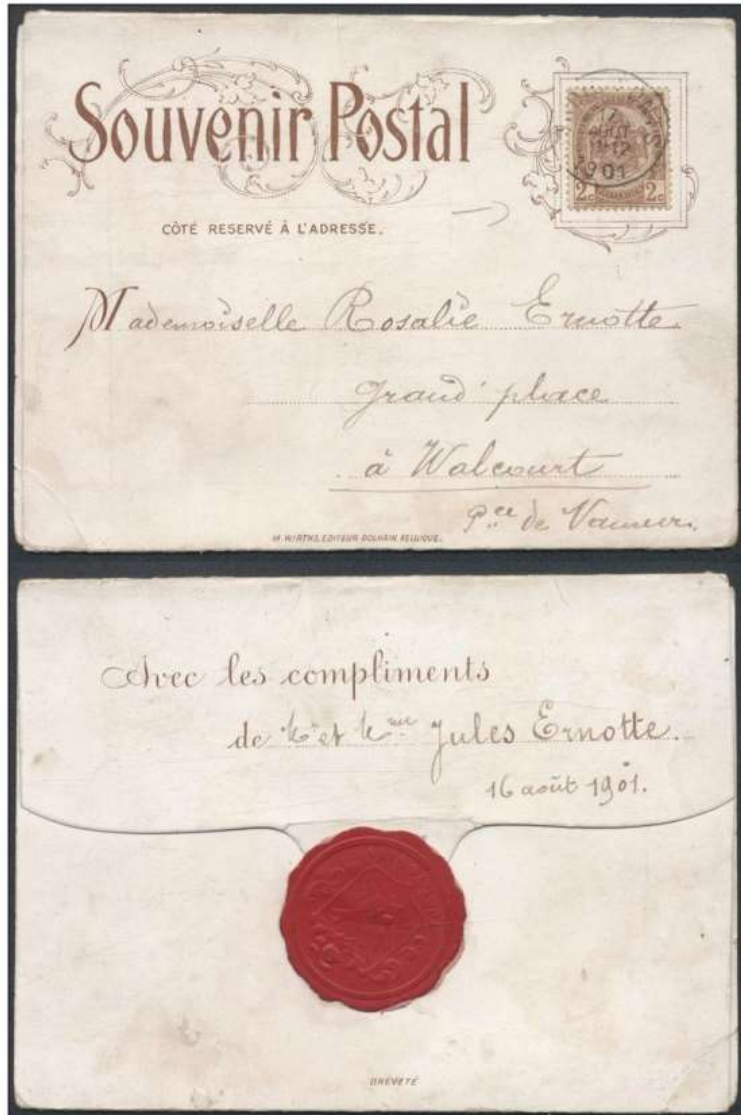 Souvenir Postal
AOUT
1901
2c 2c
CÔTÉ RESERVÉ À L'ADRESSE.
Mademoiselle Rosalie Ernotte
Grand'place
à Walcourt
Pce de Namur.
M. WIRTHS, EDITEUR DOLHAIN, BELGIQUE.
Avec les compliments
de Mr et Mme Jules Ernotte.
16 août 1901.
BREVETÉ